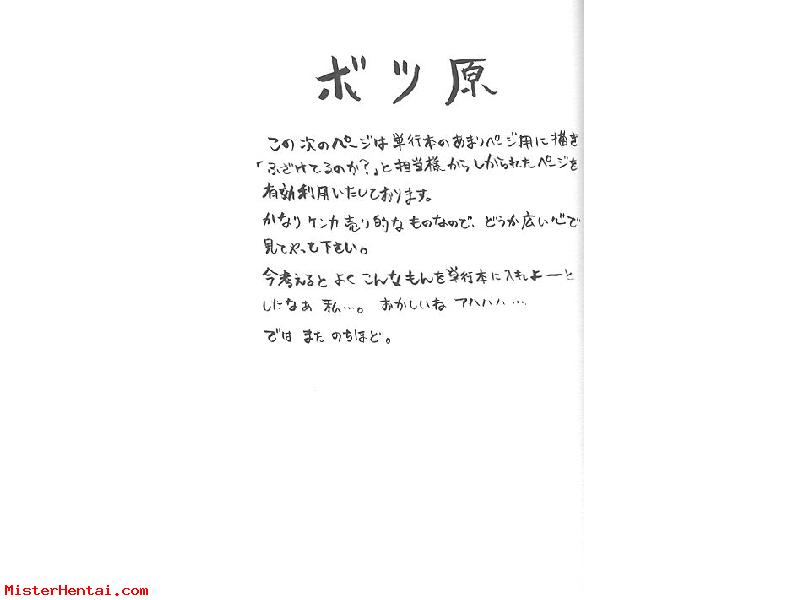 ボツ原
この次のページは単行本のあまりページ用に描き
「ふざけてるのか?」と担当様からしかられたページを
有効利用いたしております。
かなりケンカ売り的なものなので、どうか広い心で
見てやって下さい。
今考えるとよくこんなもんを単行本に入れよーと
したなあ 私…。おかしいね アハハハ…
では また のちほど。
MisterHentai.com